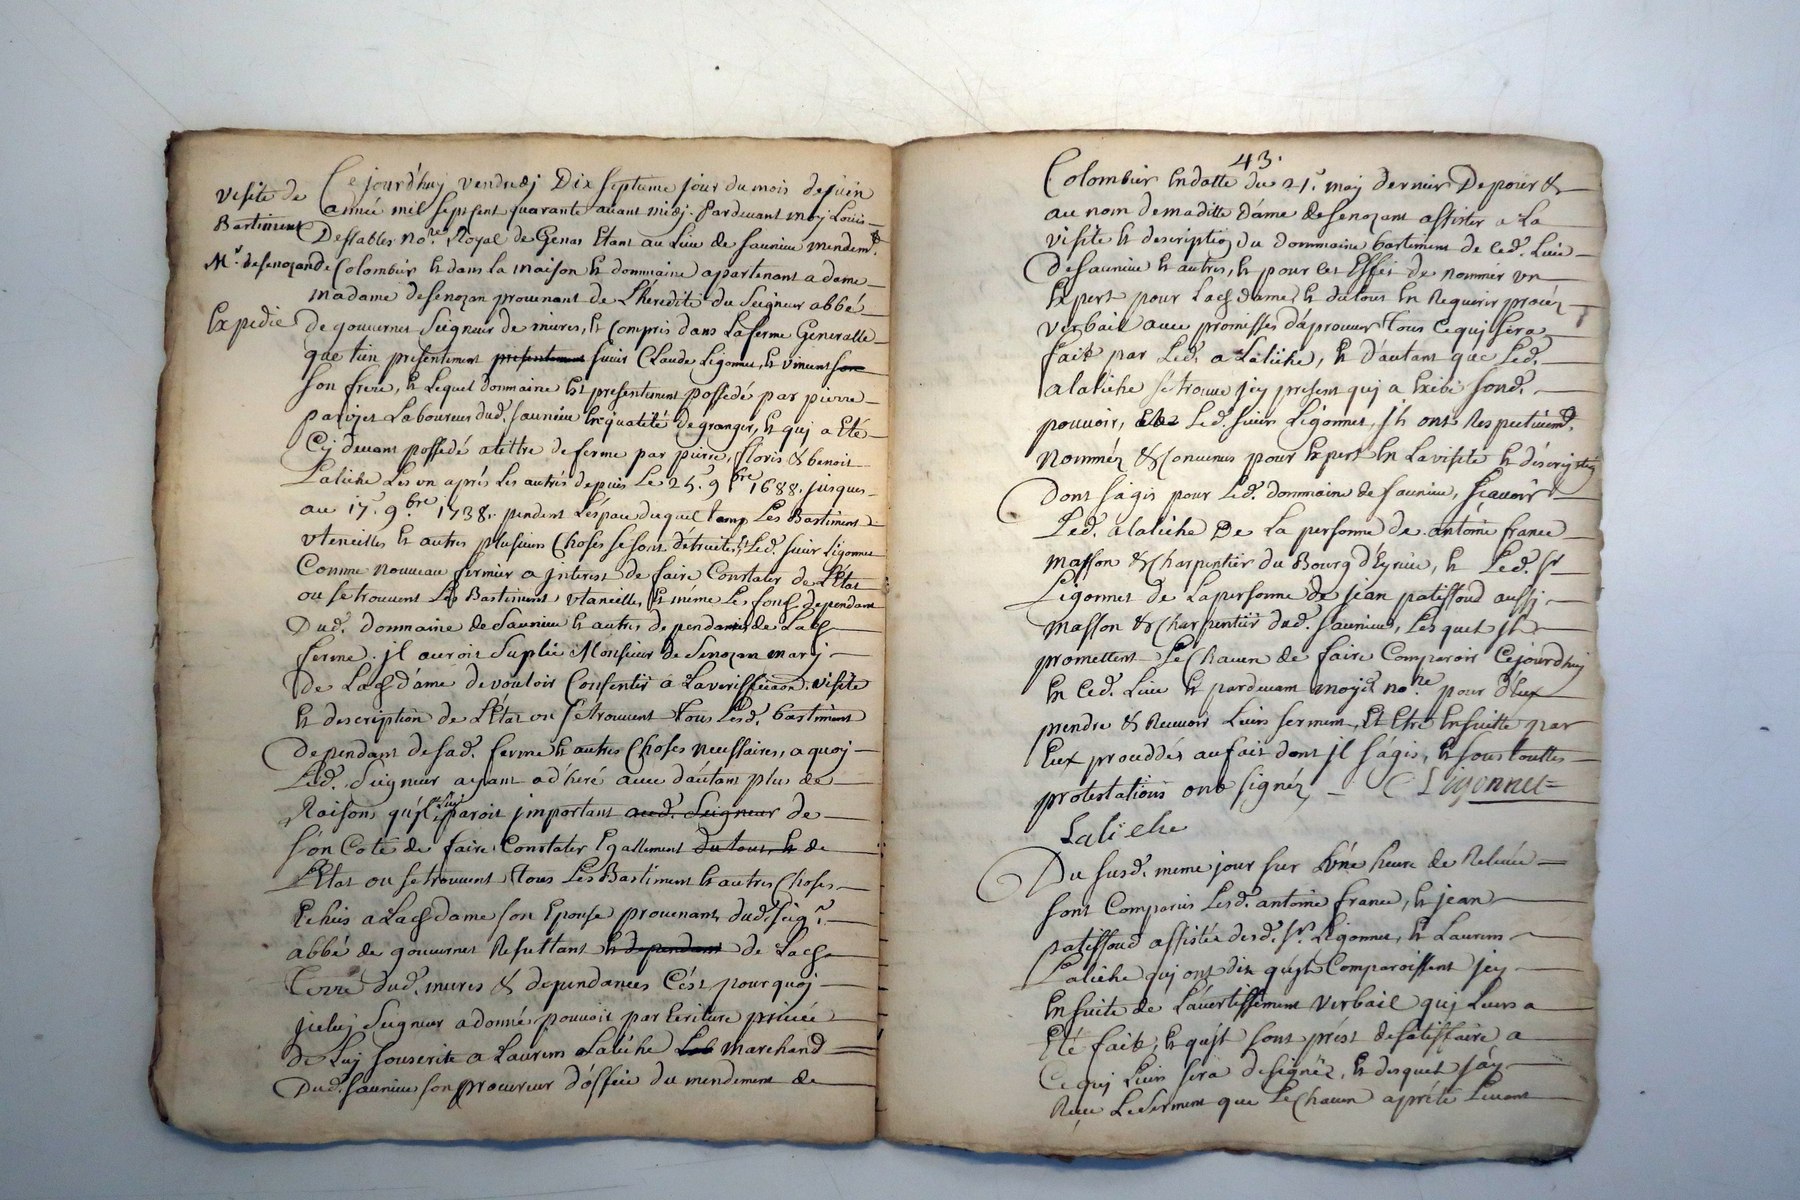 visite de
Bastiment
Mr. desenozan
Expedié
Cejourd'huy vendredj Dix septieme jour du mois dejuin
année mil sept sent quarante avant midj. Pardevant moy Louis
Destables nore. Royal de Genas Etant au Lieu de saunieu mendemt.
de Colombier & dans la maison & dommaine apartenant a dame
madame desenozan provenant de L'héredité du Seigneur abbé
de gouvernet Seigneur de mures, & Compris dans La ferme Generalle
que tien presentement presentement sieur Claude Ligonnet, & vincent son
son frere, & Lequel dommaine Est presentement possédé par pierre
parojet Laboureur dud. saunieu En quatité de granger, & quj a Eté
Cj devant possedé a tittre de ferme par pierre, floris & benoit
Laliche Les un aprés Les autres depuis Le 25e. 9bre 1688. jusques
au 17e. 9bre 1738. pendent L'éspace duquel temp Les Bastiment
vtencilles & autres plusieurs Choses se sont détruites, & Led. sieur Ligonnet
Comme nouveau fermier a jnterest de faire Constater de L'état
ou se trouvent Les Bastiment vtancilles, & même Le fonds dependant
Dud. dommaine de Saunieu & autres dependantes de Lad.
ferme. jl auroit Suplié Monsieur de Senozan marj
de Lad. dame de vouloir Consentir a La veriffication, visite
& description de L'état ou se trouvent tous Lesd. bastiment
dependant de sad. ferme & autres Choses necessaires, a quoj
Led. Seigneur ayant adheré avec d'autant plus de
Raison, qu'jl luy paroit jmportant aud. Seigneur de
son Coté de faire Constater Egallement du tout, & de
L'état ou se trouvent tous Les Bastiment & autres Choses
Echus a Lad. dame son Epouse provenant dud. seigr.
abbé de gouvernet Resultant & dependant de Lad.
Terre dud. mures & dependances C'ést pourquoj
jceluj Seigneur a donné pouvoir par Ecriture privée
de Luj souscrite a Laurens Laliche Led. marchand
Dud. saunieu son procureur d'office du mendement de
43.
Colombier En datte du 21e. maj dernier De pour &
au nom de maditte dame de senozant assister a La
visite & description du dommaine bastiment de Ced. Lieu
de saunieu & autres, & pour cet Effet de nommer un
Expert pour Lad. dame, & du tout En Requerir procéz
verbail avec promesses d'aprouver tous ce quj sera
fait par Led. a Laliche, & d'autant que Led.
a laliche se trouve jcy present quj a Exibé sond.
pouvoir, Led. sieur Ligonnet, jls ont Respectivemt.
Nomméz & Convenus pour Expert En La visite & déscription
dont s'agit pour Led. dommaine de saunieu, scavoir
Led. a laliche De La personne de antoine france
masson & Charpentier du Bourg d'Eyrieu, & Led. Sr.
Ligonnet de La personne de jean patissoud aussj
masson & Charpentier dud. saunieu, Lesquel jls
promettent Le Chacun de faire Comparoir Cejourd'huj
En Ced. Lieu & pardevant moyd. nore. pour d'Eux
prendre & Recevoir Leurs serment, Et Etre Ensuitte par
Eux proceddés au fait dont jl s'agit, & sous touttes
protestations ont signéz
Ligonnet
Laliche
Du susd. meme jour sur Une heure de Relevée
sont Comparus Lesd. antoine france, & jean
patissoud assistés desd. srs. Ligonnet, & Laurens
Laliche quj ont dit qu'jls Comparoissent jcy
Ensuite de L'avertissement verbail quj Leurs a
Eté fait, & qu'jls sont prést de satisfaire a
Ce quj Leurs sera designéz, & desquel j'ay
Reçu Le serment que Le Chacun a prété Levant